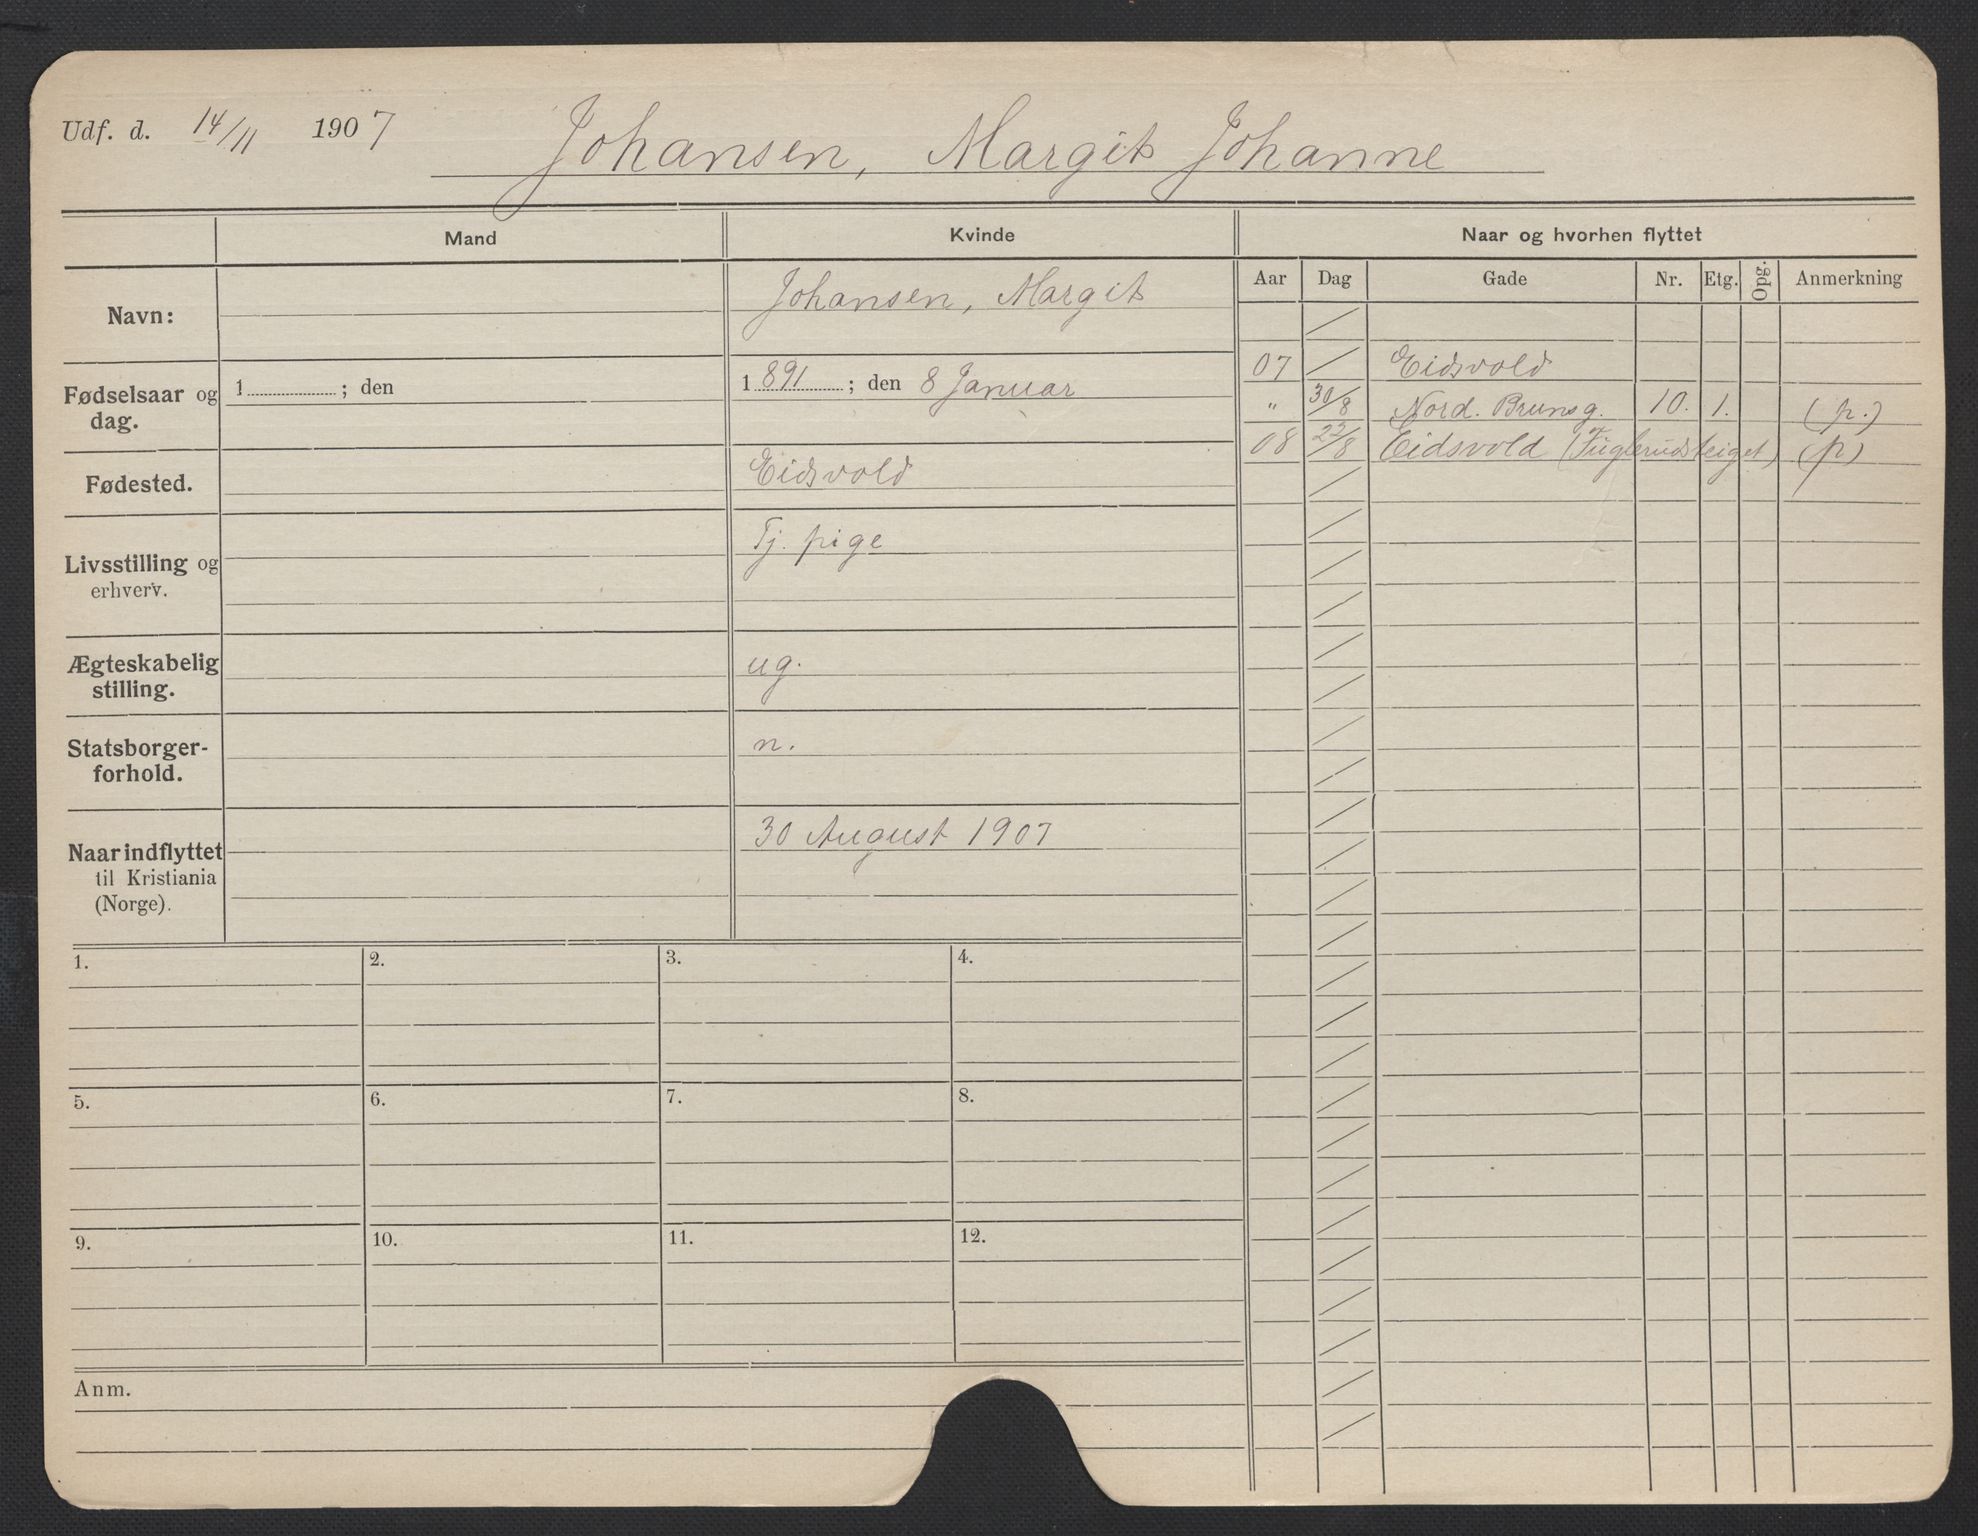 Udf. d. 14/11 1907 Johansen, Margit Johanne
Mand Kvinde Naar og hvorhen flyttet
Aar Dag Gade Nr. Etg. Opg. Anmerkning
Navn: Johansen, Margit
Fødselsaar og dag. 1 ; den 1891 ; den 8 Januar
Fødested. Eidsvold
Livsstilling og erhverv. Tj. pige
Ægteskabelig stilling. ug.
Statsborger-
forhold. n.
Naar indflyttet
til Kristiania
(Norge). 30 August 1907
07 / Eidsvold
" 30/8 Nord. Brunsg. 10. 1. (p.)
08 /8 Eidsvold (Fuglerudsteiget) (p)
1. 2. 3. 4.
5. 6. 7. 8.
9. 10. 11. 12.
Anm.